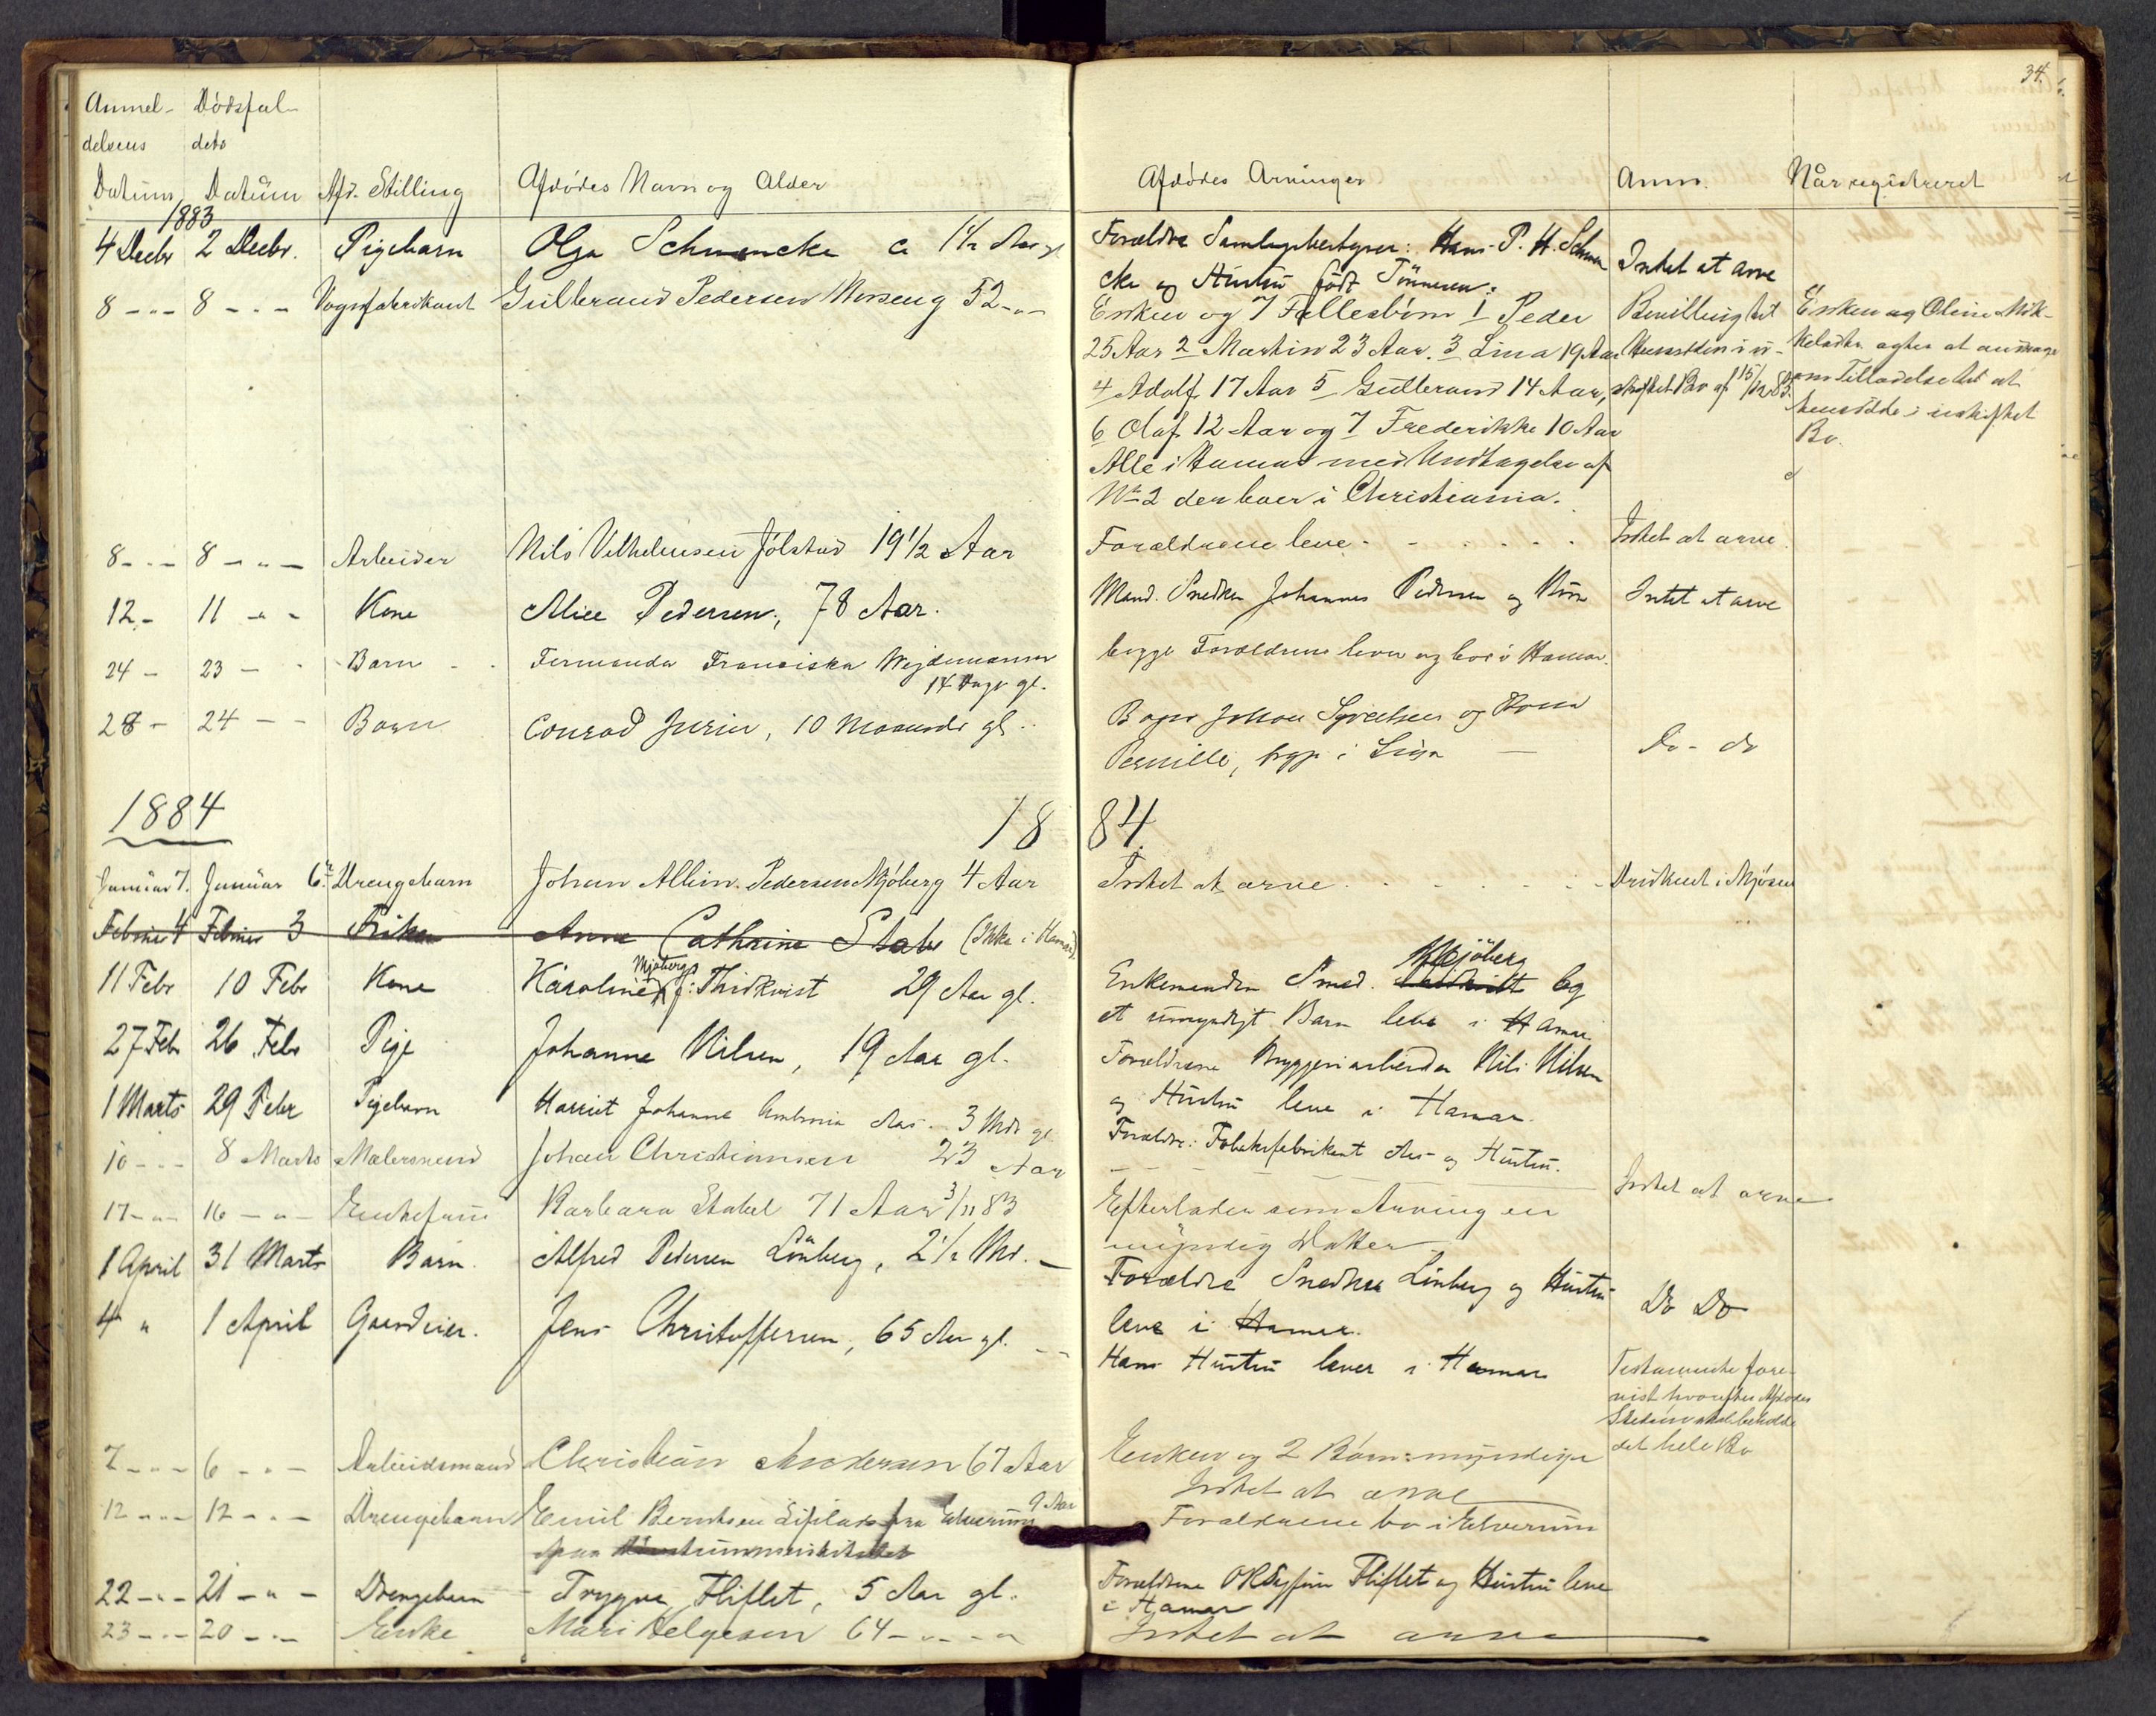 34.
Anmel- Dødsfal-
delsens dets
Datum Datum Afd. Stilling Afdødes Navn og Alder Afdødes Arvinger Anm. Når registreret
1883
4 Decbr 2 Decbr. Pigebarn Olga Schmencke ca 1½ Aar gl
Forældre Hans P. H. Schmen
cke og Hustru født Tønnesen. Intet at arve
8 - " - 8 - " - Vognfabrikant Gulbrand Pedersen Morseng 52 - " -
Enken og 7 Fællesbørn 1 Peder
25 Aar 2 Martin 23 Aar. 3 Lina 19 Aar
4 Adolf 17 Aar 5 Gulbrand 14 Aar,
6 Olaf 12 Aar og 7 Frederikke 10 Aar
Alle i Hamar med Undtagelse af
No 2 der boer i Christiania.
Bevilling til
Hensidden i u-
skiftet Bo af 15/12 83.
Enken og Oline Mik-
kelsdtr agter at ansøge
om Tilladelse til at
hensidde i uskiftet
Bo.
8 - " - 8 - " - Arbeider Nils Vilhelmsen Jølstad 19 1/2 Aar Forældrene leve - - - - - Intet at arve.
12 - 11 - " - Kone Alice Pedersen, 78 Aar. Mand. Snedker Johannes Pedersen og Børn Intet at arve
24 - 23 - " Barn - - Fernanda Franciska Wejdemann
14 Dage gl.
begge Forældrene lever og bor i Hamar.
28 - 24 - - Barn Conrad Jurin, 10 Maaneder gl..
Johan Syvertsen og Kone
Pernille, begge i Do - do
1884 18 84.
Januar 7. Januar 6. Drengebarn Johan Albin Pedersen Mjøberg 4 Aar Intet at arve - - - - - Druknet i Mjøsen
Februar 4 Februar 3 Frøken Anne Cathrine Stabe (Ikke i Hamar)
11 Febr 10 Febr Kone Karoline Mjøberg f: Thidkvist 29 Aar gl.
Enkemanden Smed. Mjöberg og
et umyndigt Barn leve i Hamar.
27 Feb 26 Feb Pige Johanne Nilsen, 19 Aar gl.
Forældrene Bryggeriarbeider Nils Nilsen
og Hustru leve i Hamar.
1 Marts 29 Febr Pigebarn Harriet Johanne Ambrosia Aas - 3 Mdr gl.
Forældre: Tobaksfabrikant Aas og Hustru.
10 - - - 8 Marts Malersvend Johan Christiansen 23 Aar - - - - - Intet at arve
17 - " - 16 - " - Enkefrue Barbara Stabel 71 Aar 3/11 83
Efterlader som Arving en
myndig Datter
1 April 31 Marts Barn. Alfred Pedersen Lönberg, 2½ Md. -
Forældre Snedker Lönberg og Hustru
leve i Hamar. Do Do
4 " 1 April Gaardeier. Jens Christoffersen, 65 Aar gl. - -
Hans Hustru lever i Hamar
Testamente fore-
vist hvorefter Afdødes
beholde
det hele Bo
7 - " - 6 - " - Arbeidsmand Christian Andersen 67 Aar
Enken og 2 Børn myndige
Intet at arve
12 - " - 12 - " - Drengebarn Emil Berntsen fra Elverum 9 Aar
Forældrene bo i Elverum
22 - " - 21 - " - Drengebarn - Trygve Fliflet, 5 Aar gl.
Forældrene Fliflet og Hustru leve
i Hamar
23 - " - 20 - " - Enke Mari Helgesen 64 - " - " Intet at arve